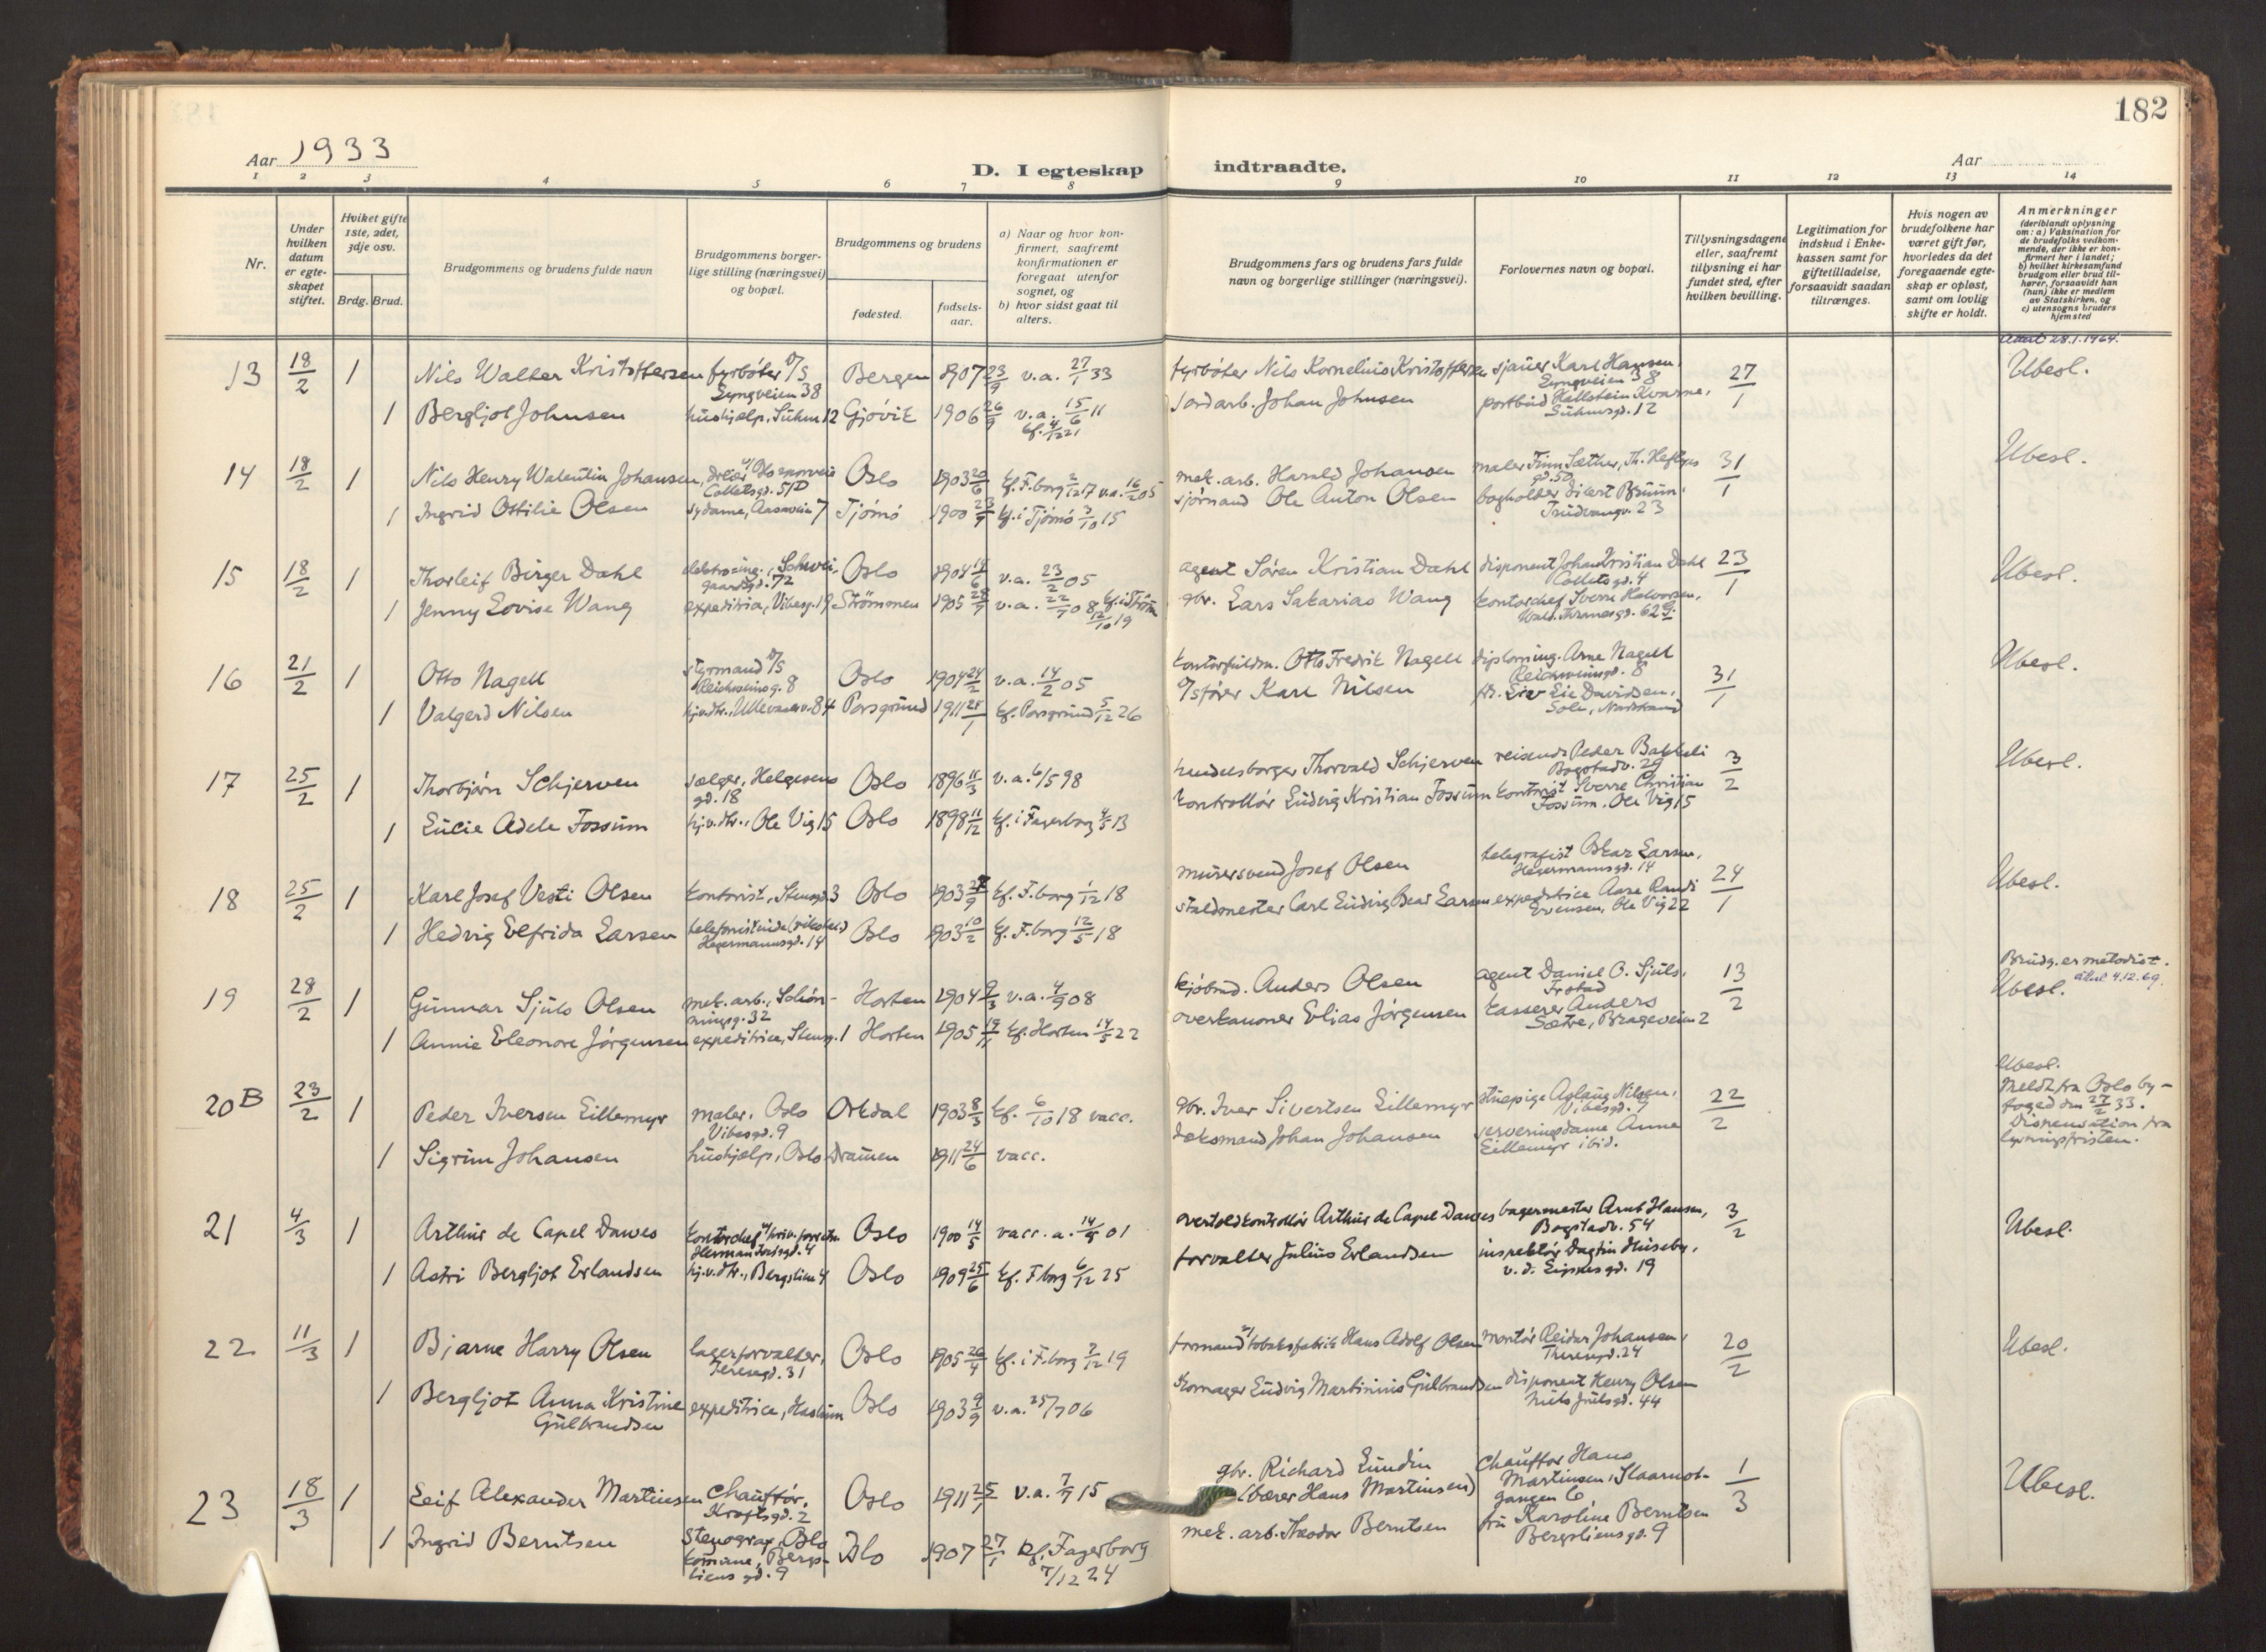 182
Aar 1933
D. I egteskap indtraadte.
Aar
1 2 3 4 5 6 7 8 9 10 11 12 13 14
Nr.
Under hvilken datum er egte-skapet stiftet.
Hvilket gifte 1ste, 2det, 3dje osv.
Brdg. Brud.
Brudgommens og brudens fulde navn
Brudgommens borger-lige stilling (næringsvei) og bopæl.
Brudgommens og brudens
fødested.
fødsels-aar.
a) Naar og hvor kon-firmert, saafremt konfirmationen er foregaat utenfor sognet, og
b) hvor sidst gaat til alters.
Brudgommens fars og brudens fars fulde navn og borgerlige stillinger (næringsvei).
Forlovernes navn og bopæl.
Tillysningsdagene eller, saafremt tillysning ei har fundet sted, efter hvilken bevilling.
Legitimation for indskud i Enke-kassen samt for giftetilladelse, forsaavidt saadan tiltrænges.
Hvis nogen av brudefolkene har været gift før, hvorledes da det foregaaende egte-skap er opløst, samt om lovlig skifte er holdt.
Anmerkninger
(deriblandt oplysning om: a) Vaksination for de brudefolks vedkom-mende, der ikke er kon-firmert her i landet; b) hvilket kirkesamfund brudgom eller brud til-hører, forsaavidt han (hun) ikke er medlem av Statskirken, og c) utensogns bruders hjemsted
Attest 28.1.1964.
13 18/2 1 Nils Walter Kristoffersen fyrbøter D/S Lyngveien 38 Bergen 1907 23/9 v.a. 27/1 33 fyrbøter Nils Kornelius Kristoffersen sjauer Karl Hansen, Lyngveien 38 27/1 Ubesl.
1 Bergljot Johnsen hushjælp, Suhm 12 Gjøvik 1906 26/9 v.a. 15/6 11 kf. 4/12 21 jordarb. Johan Johnsen portbud Hallstein Kvarne, Suhmsgd. 12
14 18/2 1 Nils Henry Walentin Johansen, dreier v/Oslo sporveie Colletsgd. 51D Oslo 1903 20/6 kf. F.borg 2/12 17 v.a. 16/2 05 mek. arb. Harald Johansen maler Finn Sæther, Th. Heftyes gd. 50 31/1 Ubesl.
1 Ingrid Ottilie Olsen sydame, Aasaveien 7 Tjømø 1900 23/9 kf. i Tjømø 3/10 15 sjømand Ole Anton Olsen bogholder Eilert Bruun, Trudvangv. 23
15 18/2 1 Thorleif Birger Dahl elektroing., Schwei-gaardsgd. 72 Oslo 1904 14/6 v.a. 23/2 05 agent Søren Kristian Dahl disponent Johan Kristian Dahl Colletsgd. 4 23/1 Ubesl.
1 Jenny Lovise Wang expeditrice, Vibesg. 19 Strømmen 1905 28/9 v.a. 22/9 08 kf. i Strøm 12/10 19 gbr. Lars Sakarias Wang kontorchef Sverre Halvorsen, Wald. Thranesgd. 62 G.
16 21/2 1 Otto Nagell styrmand D/S Reichweinsg. 8 Oslo 1904 24/2 v.a. 14/2 05 kontorfuldm. Otto Fredrik Nagell diploming. Arne Nagell Reichweinsgd. 8 31/1 Ubesl.
1 Valgerd Nilsen hj.v.dtr., Ullevaalsv. 84 Porsgrund 1911 28/1 kf. Porsgrund 5/12 26 D/Sfører Karl Nilsen fr. Liv Lie Davidsen, Sole, Nordstrand
17 25/2 1 Thorbjørn Schjerven sælger, Helgesens gd. 18 Oslo 1896 11/3 v.a. 6/5 98 handelsborger Thorvald Schjerven reisende Peder Bakkeli Bogstadv. 29 3/2 Ubesl.
1 Lucie Adele Fossum hj.v.dtr., Ole Vig 15 Oslo 1898 11/12 kf. i Fagerborg 4/5 13 kontrollør Ludvig Kristian Fossum kontorist Sverre Christian Fossum. Ole Vig 15
18 25/2 1 Karl Josef Vesti Olsen kontorist, Stensgd. 3 Oslo 1903 28/9 kf. F.borg 1/12 18 murersvend Josef Olsen telegrafist Oskar Larsen, Hegermannsgd. 14 24/1 Ubesl.
1 Hedvig Elfrida Larsen telefonistinde (rikstel.) Hegermannsgd. 14 Oslo 1903 10/2 kf. F.borg 12/5 18 staldmester Carl Ludvig Bear Larsen expeditrice Aase Randi Evensen, Ole Vig 22
19 28/2 1 Gunnar Sjuls Olsen mek. arb., Schøn-ningsg. 32 Horten 1904 9/3 v.a. 4/9 08 kjøbmd. Anders Olsen agent Daniel O. Sjuls, Frstad 13/2 Brudg. er metodist. Ubesl. attest 4.12.69.
1 Annie Eleonore Jørgensen expeditrice, Stensg. 1 Horten 1905 19/11 kf. Horten 14/5 22 overkanoner Elias Jørgensen kasserer Anders Sætre, Brageveien 2
20B 23/2 1 Peder Iversen Lillemyr maler, Oslo Vibesgd. 9 Orkdal 1903 8/3 kf. 6/10 18 vacc. gbr. Iver Sivertsen Lillemyr stuepige Aslaug Nilsen, Vibesgd. 9 22/2 Ubesl. Meldt fra Oslo by-foged den 27/2 33. Dispensation fra lysningsfristen.
1 Sigrun Johansen hushjælp, Oslo Drammen 1911 24/6 vacc. lodsmand Johan Johansen serveringsdame Anne Lillemyr ibid.
21 4/3 1 Arthur de Capel Dawes kontorchef v/priv. forretn. Herman Fossgd. 4 Oslo 1900 14/5 vacc. a. 14/9 01 overtoldkontrollør Arthur de Capel Dawes bagermester Arnt Hansen, Bogstadv. 54 3/2 Ubesl.
1 Astri Bergljot Erlandsen hj.v.dtr., Bergslien 4 Oslo 1909 25/6 kf. F.borg 6/12 25 forvalter Julius Erlandsen inspektør Dagfin Huseby, v. d. Lippesgd. 19
22 11/3 1 Bjarne Harry Olsen lagerforvalter, Theresegd. 31 Oslo 1905 26/4 kf. i F.borg 7/12 19 formand v/tobaksfabrik Hans Adolf Olsen montør Reidar Johansen, Theresgd. 24 20/2 Ubesl.
1 Bergljot Anna Kristine Gulbrandsen expeditrice, Haslum Oslo 1903 9/9 v.a. 25/7 06 skomager Ludvig Martinius Gulbrandsen disponent Henry Olsen Niels Juelsgd. 44
23 18/3 1 Leif Alexander Martinsen Chauffør, Kroftsgd. 2 Oslo 1911 25/7 v.a. 7/9 15 gbr. Richard Lundin (bærer Hans Martinsen) Chauffør Hans Martinsen, Slaamot-gangen 6 1/3 Ubesl.
1 Ingrid Berntsen Stenograf, Oslo komune, Bergs-liens gd. 9 Oslo 1907 27/1 kf. Fagerborg 7/12 24 mek. arb. Theodor Berntsen fru Karoline Berntsen Bergsliensgd. 9